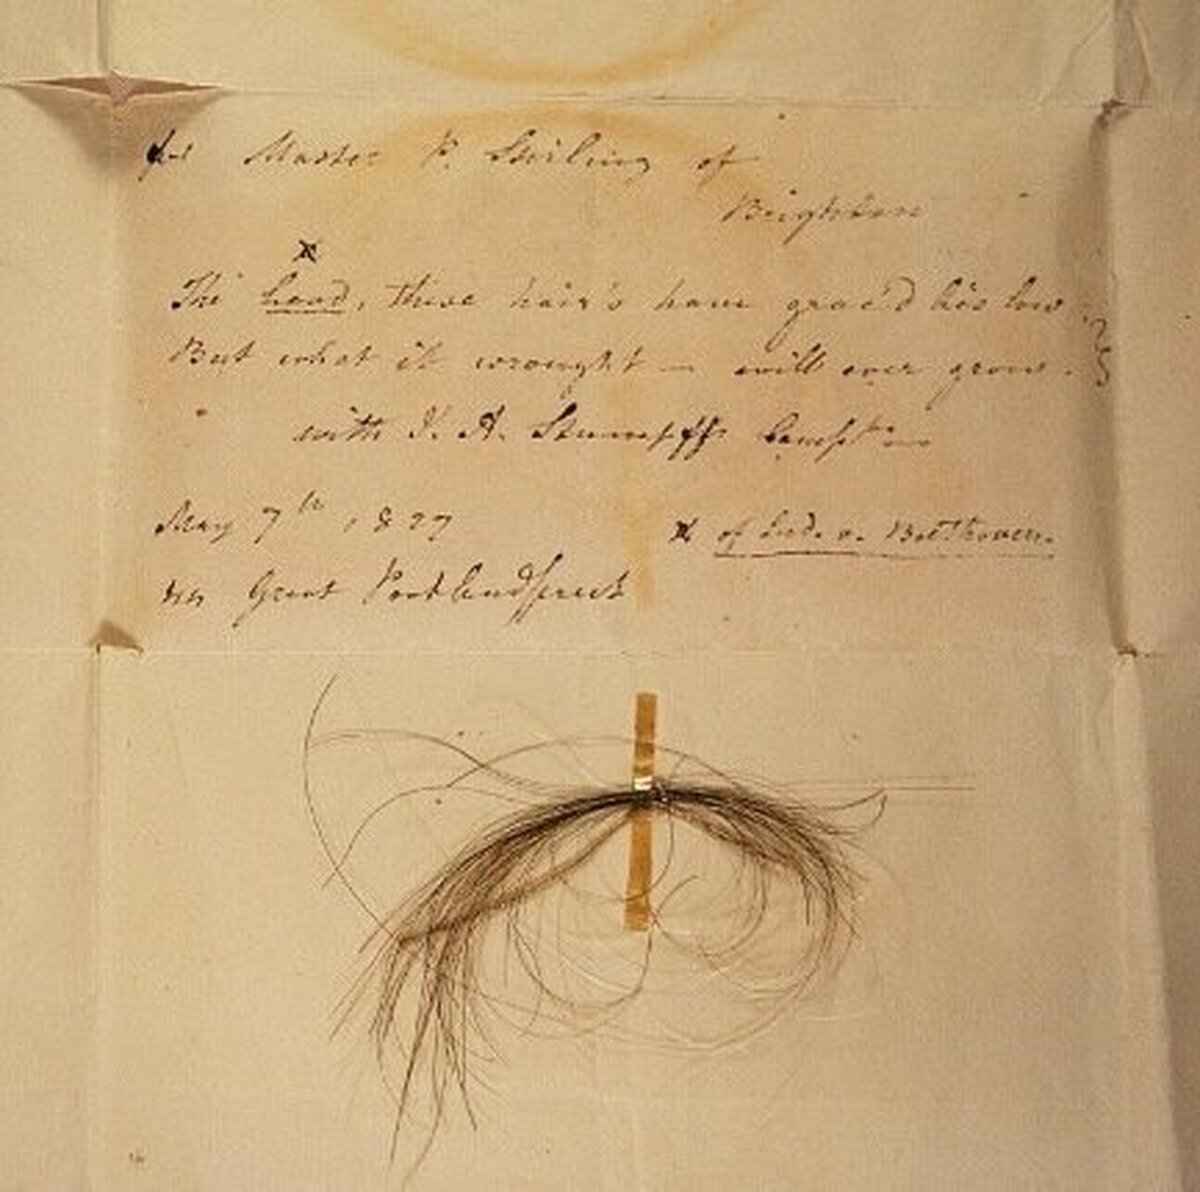 for Master P. Stirling of
Brighton
x
The head, these hair's have grac'd lies low
But what it wrought — will ever grow.
with J. A. Stumpff's Compts
May 7th 1827
x of Lud. v. Beethoven.
44 Great Portlandstreet